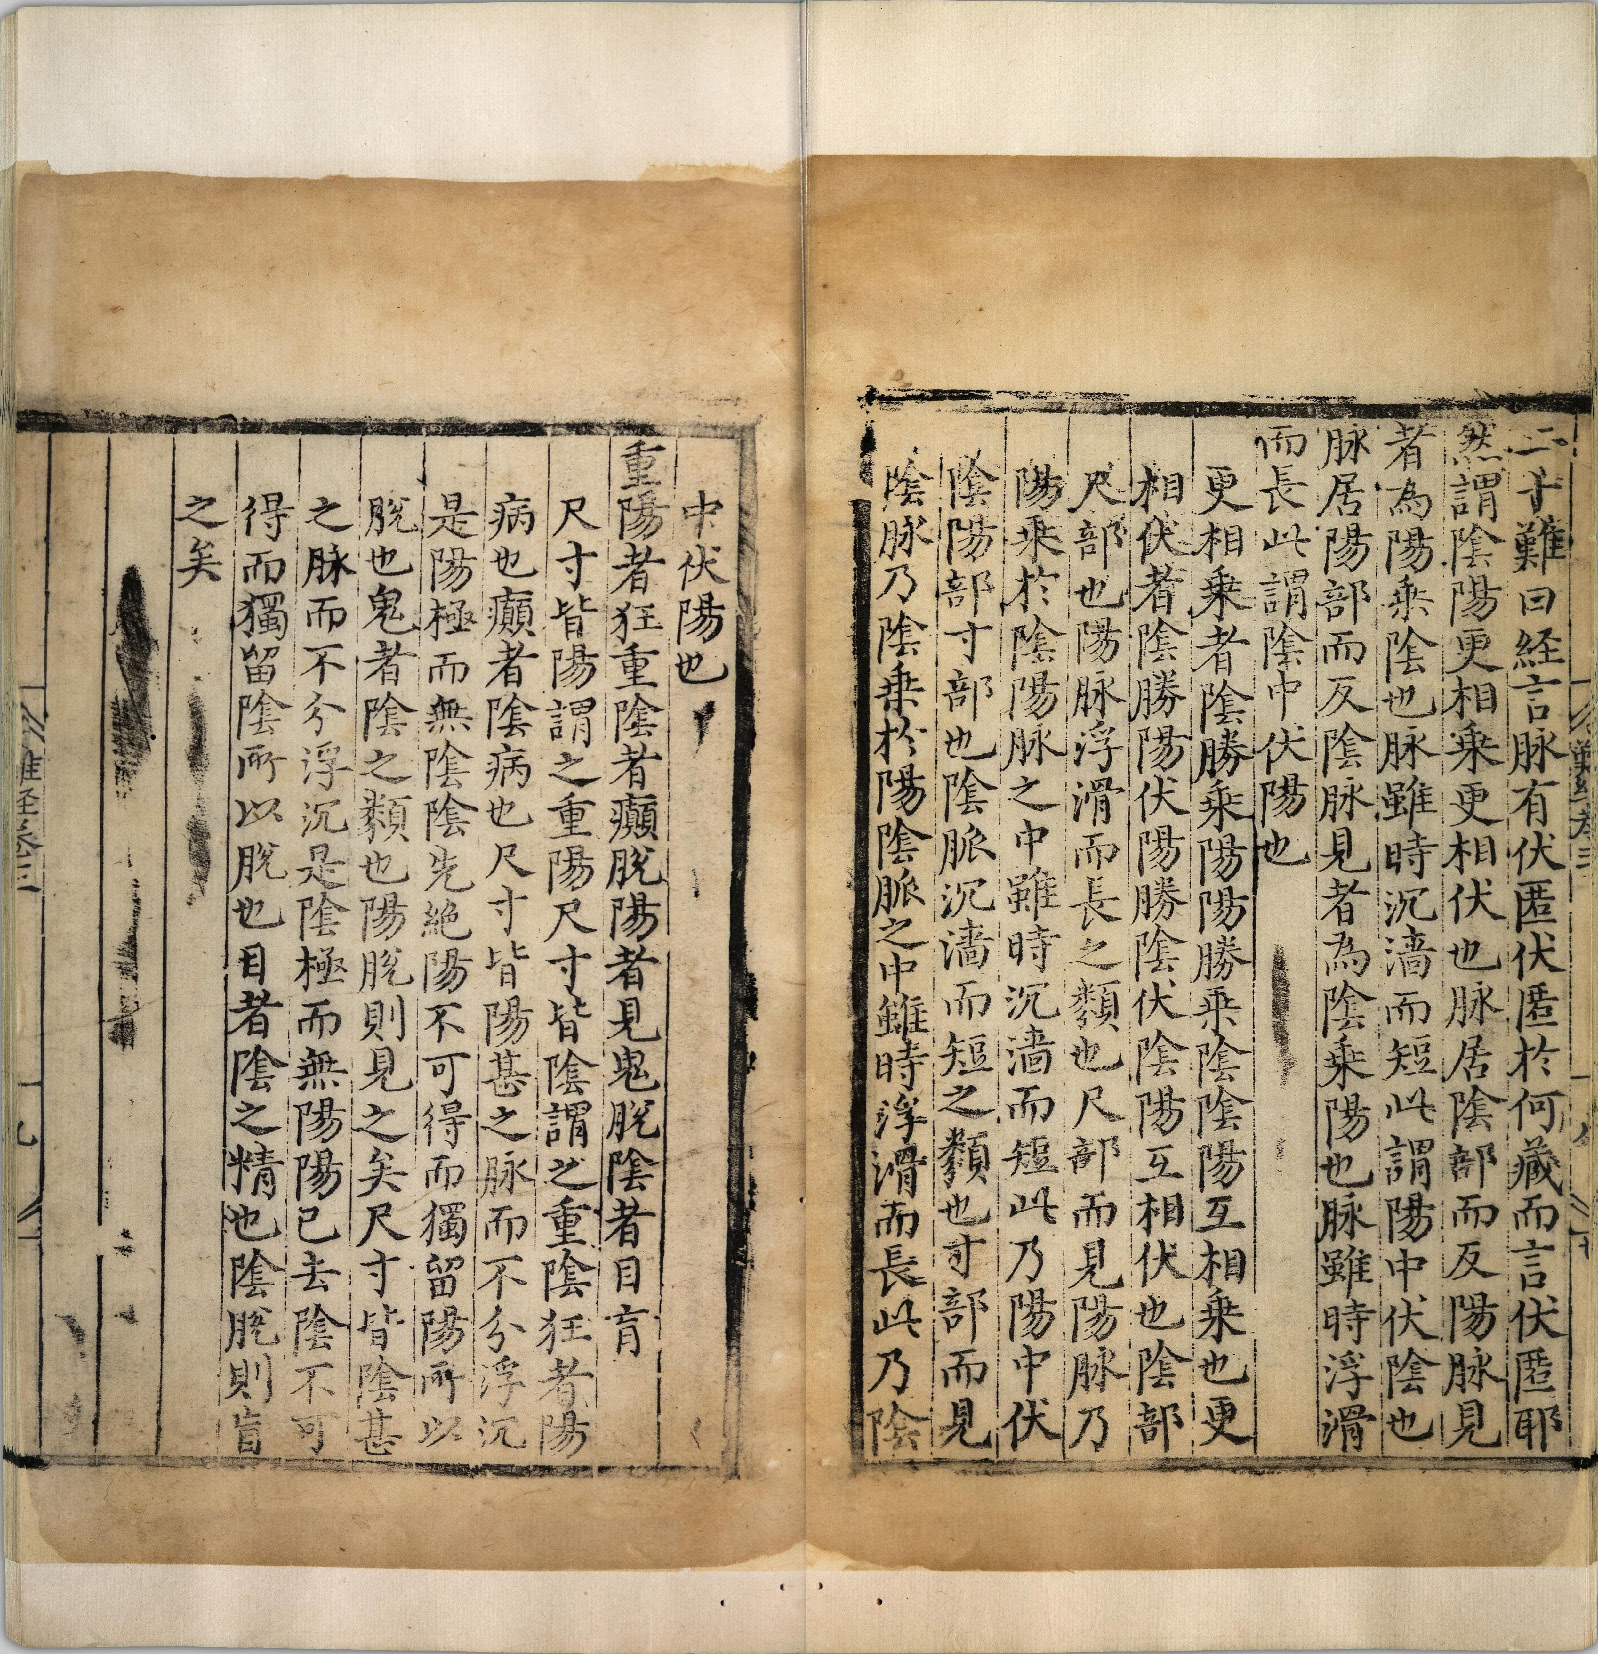 二十難曰経言脉有伏匿伏匿於何藏而言伏匿耶
然謂陰陽更相乗更相伏也脉居陰部而反陽脉見
者為陽乗陰也脉雖時沉濇而短此謂陽中伏陰也
脉居陽部而反陰脉見者為陰乗陽也脉雖時浮滑
而長此謂陰中伏陽也
更相乗者陰勝乗陽陽勝乗陰陰陽互相乗也更
相伏者陰勝陽伏陽勝陰伏陰陽互相伏也陰部
尺部也陽脉浮滑而長之類也尺部而見陽脉乃
陽乗於陰陽脉之中雖時沉濇而短此乃陽中伏
陰陽部寸部也陰脈沉濇而短之類也寸部而見
陰脉乃陰乗於陽陰脈之中雖時浮滑而長此乃陰
中伏陽也
重陽者狂重陰者癲脫陽者見鬼脫陰者目盲
尺寸皆陽謂之重陽尺寸皆陰謂之重陰狂者陽
病也癲者陰病也尺寸皆陽甚之脉而不分浮沉
是陽極而無陰陰先絶陽不可得而獨留陽所以
脫也鬼者陰之類也陽脫則見之矣尺寸皆陰甚
之脉而不分浮沉是陰極而無陽陽已去陰不可
得而獨留陰所以脫也目者陰之精也陰脫則盲
之矣
難経卷三